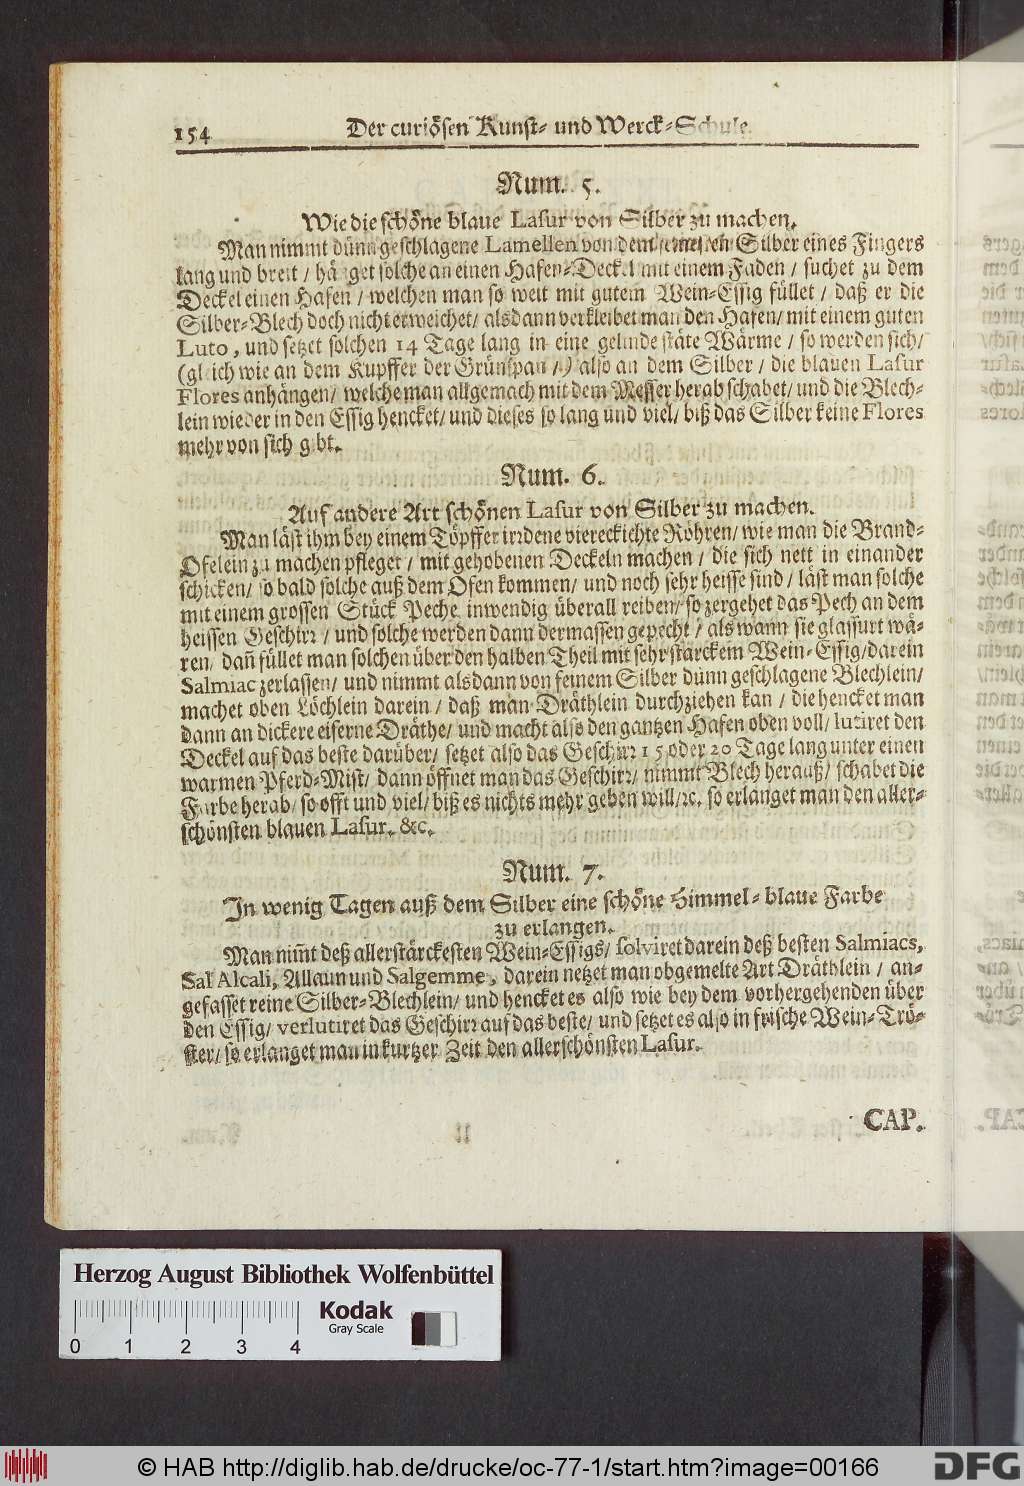 154 Der curiösen Kunst- und Werck-Schule
Num. 5.
Wie die schöne blaue Lasur von Silber zu machen.
Man nimmt dünn geschlagene Lamellen von dem feinesten Silber eines Fingers
lang und breit / hänget solche an einen Hafen-Deckel mit einem Faden / suchet zu dem
Deckel einen Hafen / welchen man so weit mit gutem Wein-Essig füllet / daß er die
Silber-Blech doch nicht erweichet / alsdann verkleibet man den Hafen / mit einem guten
Luto, und setzet solchen 14 Tage lang in eine gelinde stäte Wärme / so werden sich /
(gleich wie an dem Kupffer der Grünspan /) also an dem Silber / die blauen Lasur
Flores anhängen / welche man allgemach mit dem Messer herab schabet / und die Blech-
lein wieder in den Essig hencket / und dieses so lang und viel / biß das Silber keine Flores
mehr von sich gibt.
Num. 6.
Auf andere Art schönen Lasur von Silber zu machen.
Man läst ihm bey einem Töpffer irrdene viereckichte Röhren / wie man die Brand-
Ofelein zu machen pfleget / mit gehobenen Deckeln machen / die sich nett in einander
schicken / so bald solche auß dem Ofen kommen / und noch sehr heisse sind / läst man solche
mit einem grossen Stück Peche inwendig überall reiben / so zergehet das Pech an dem
heissen Geschirr / und solche werden dann dermassen gepecht / als wann sie glassurt wä-
ren / dañ füllet man solchen über den halben Theil mit sehr starckem Wein-Essig / darein
Salmiac zerlassen / und nimmt alsdann von feinem Silber dünn geschlagene Blechlein /
machet oben Löchlein darein / daß man Dräthlein durchziehen kan / die hencket man
dann an dickere eiserne Dräthe / und macht also den gantzen Hafen oben voll / lutiret den
Deckel auf das beste darüber / setzet also das Geschirr 15 oder 20 Tage lang unter einen
warmen Pferd-Mist / dann öffnet man das Geschirr / nimmt Blech herauß / schabet die
Farbe herab / so offt und viel / biß es nichts mehr geben will / ꝛc. so erlanget man den aller-
schönsten blauen Lasur. &c.
Num. 7.
In wenig Tagen auß dem Silber eine schöne Himmel-blaue Farbe
zu erlangen.
Man nim̃t deß allerstärckesten Wein-Essigs / solviret darein deß besten Salmiacs,
Sal Alcali, Allaun und Salgemme, darein netzet man obgemelte Art Dräthlein / an-
gefasset reine Silber-Blechlein / und hencket es also wie bey dem vorhergehenden über
den Essig / verlutiret das Geschirr auf das beste / und setzet es also in frische Wein-Trö-
ster / so erlanget man in kurtzer Zeit den allerschönsten Lasur.
CAP.
Herzog August Bibliothek Wolfenbüttel
0 1 2 3 4
Kodak
Gray Scale
© HAB http://diglib.hab.de/drucke/oc-77-1/start.htm?image=00166
DFG